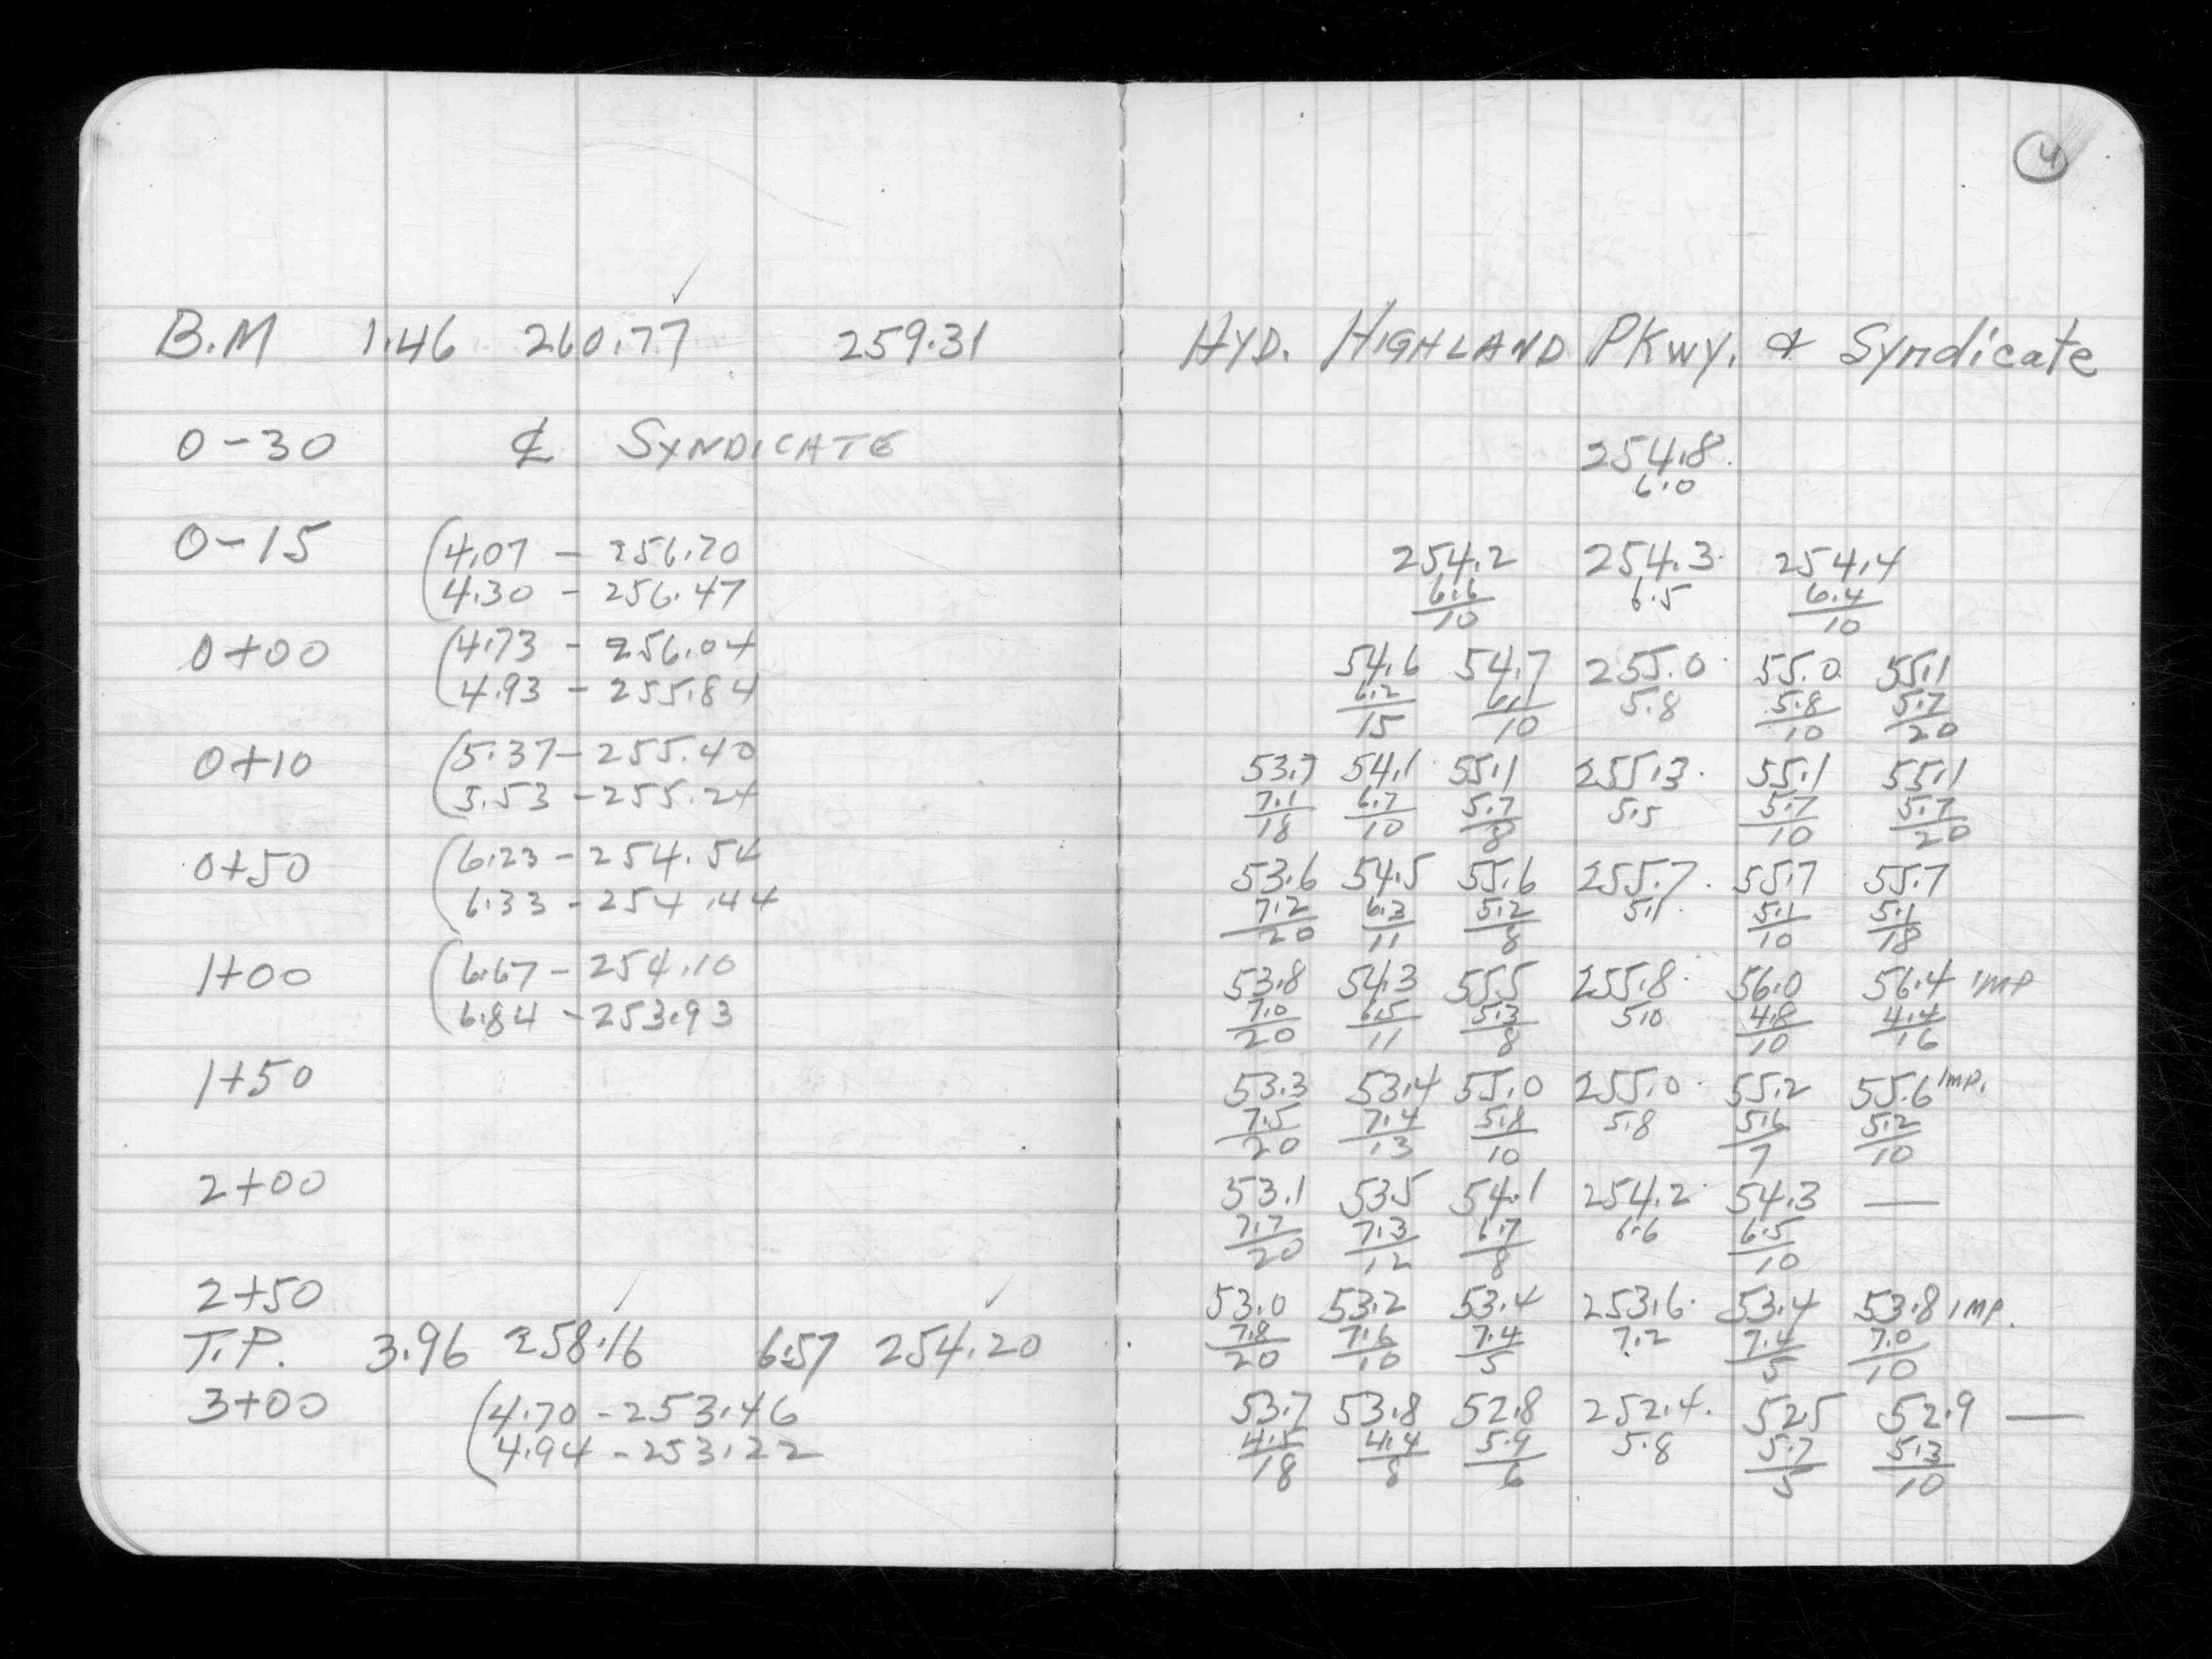 4
B.M 1.46 260.77 ✓ 259.31 HYD. HIGHLAND PKWY. & Syndicate
0-30 ℄ SYNDICATE 254.8
6.0
0-15 (4.07 - 256.70 254.2 254.3 254.4
4.30 - 256.47 6.6/10 6.5 6.4/10
0+00 (4.73 - 256.04 54.6 54.7 255.0 55.0 55.1
4.93 - 255.84 6.2/15 6.1/10 5.8 5.8/10 5.7/20
0+10 (5.37 - 255.40 53.7 54.1 55.1 255.3 55.1 55.1
5.53 - 255.24 7.1/18 6.7/10 5.7/8 5.5 5.7/10 5.7/20
0+50 (6.23 - 254.54 53.6 54.5 55.6 255.7 55.7 55.7
6.33 - 254.44 7.2/20 6.3/11 5.2/8 5.1 5.1/10 5.1/18
1+00 (6.67 - 254.10 53.8 54.3 55.5 255.8 56.0 56.4 IMP
6.84 - 253.93 7.0/20 6.5/11 5.3/8 5.0 4.8/10 4.4/16
1+50 53.3 53.4 55.0 255.0 55.2 55.6 IMP.
7.5/20 7.4/13 5.8/10 5.8 5.6/7 5.2/10
2+00 53.1 53.5 54.1 254.2 54.3 —
7.7/20 7.3/12 6.7/8 6.6 6.5/10
2+50 53.0 53.2 53.4 253.6 53.4 53.8 IMP.
7.8/20 7.6/10 7.4/5 7.2 7.4/5 7.0/10
T.P. 3.96 258.16 ✓ 6.57 254.20 ✓
3+00 (4.70 - 253.46 53.7 53.8 52.8 252.4 52.5 52.9 —
4.94 - 253.22 4.5/18 4.4/8 5.9/6 5.8 5.7/5 5.3/10